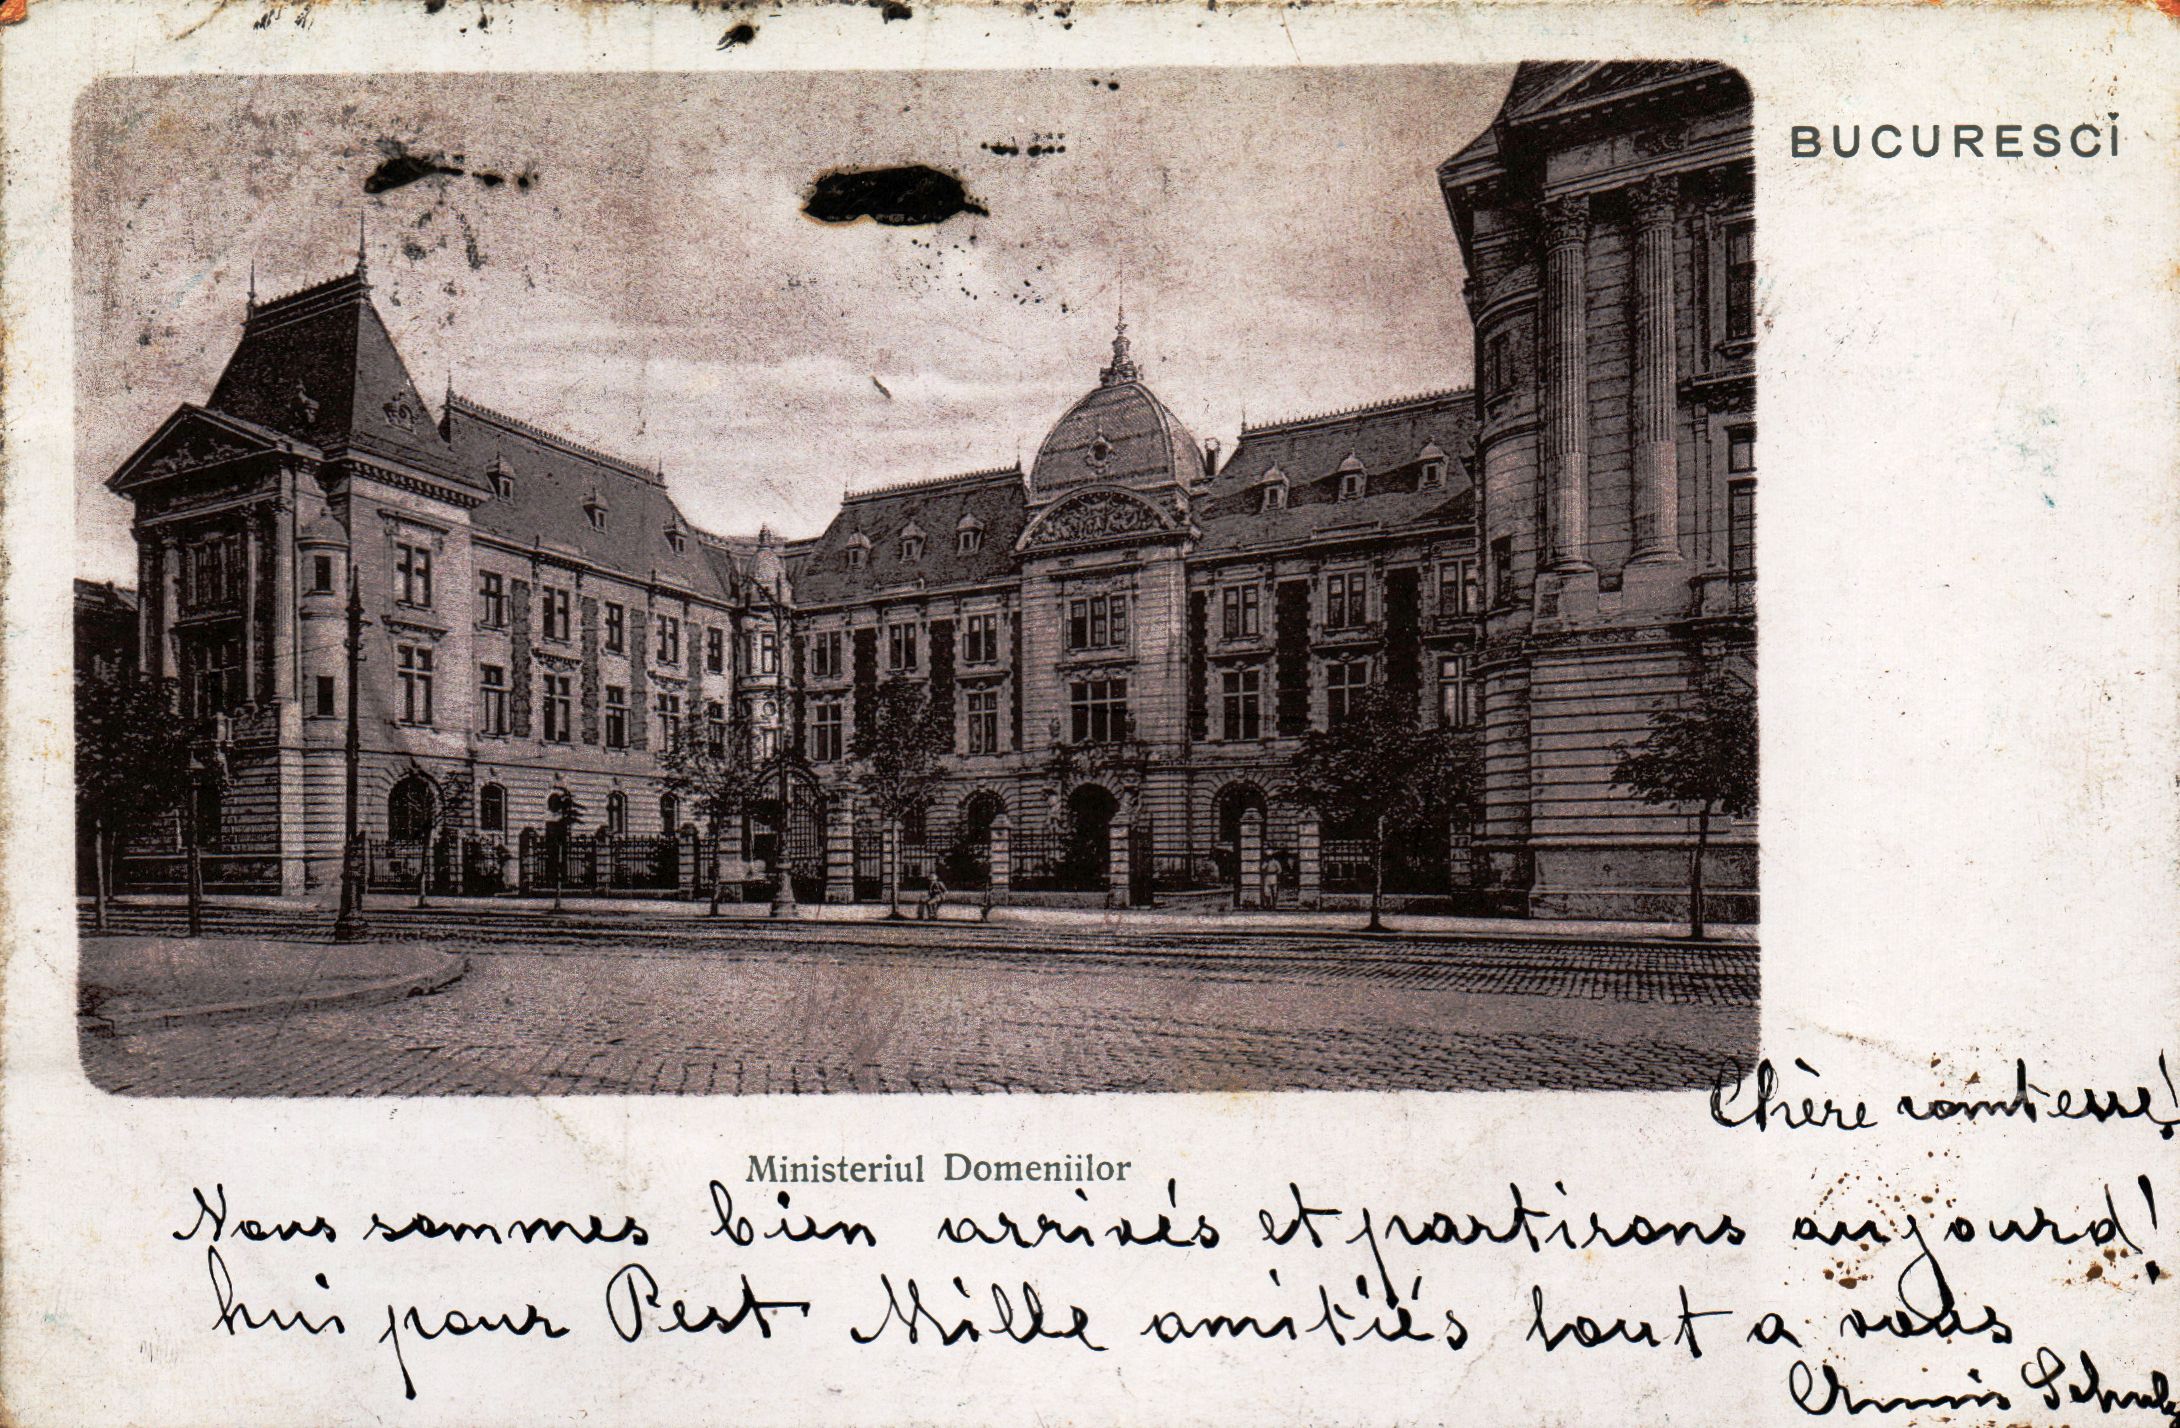 BUCURESCI
Chère comtesse!
Ministeriul Domeniilor
Nous sommes bien arrivés et partirons aujourd'
hui pour Pest Mille amitiés tout a vous